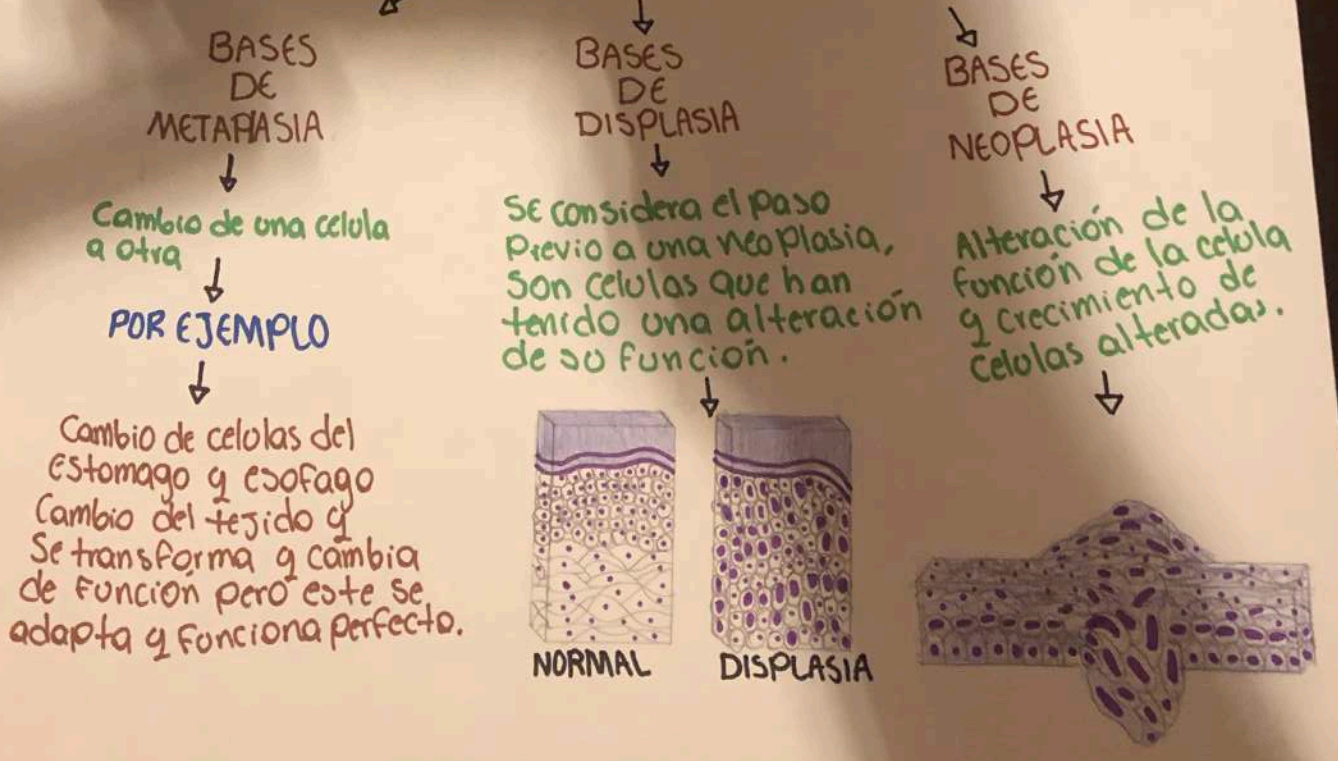 BASES
DE
METAPLASIA
Cambio de una celula
a otra
POR EJEMPLO
Cambio de celulas del
Estomago y esofago
Cambio del tejido y
Se transforma y cambia
de Función pero este se
adapta y Funciona perfecto.
BASES
DE
DISPLASIA
SE considera el paso
Previo a una neoplasia,
Son celulas que han
tenido una alteración
de su función.
NORMAL
DISPLASIA
BASES
DE
NEOPLASIA
Alteración de la
función de la celula
y crecimiento de
celulas alteradas.